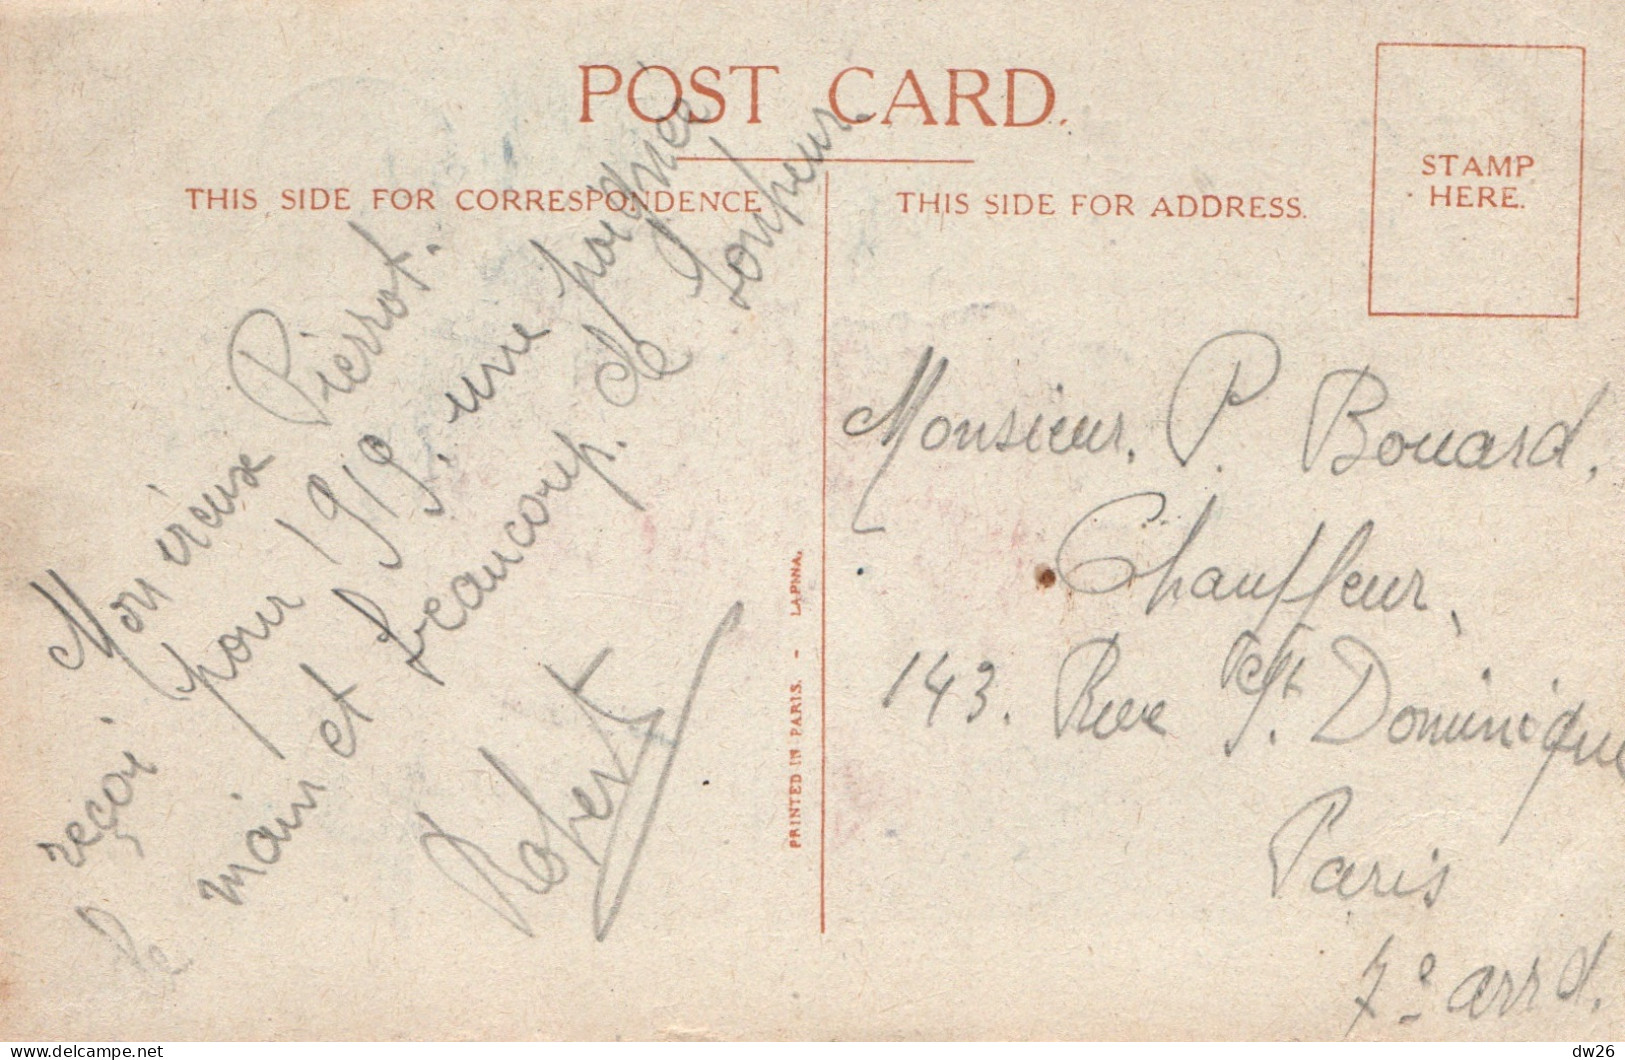 POST CARD.
THIS SIDE FOR CORRESPONDENCE
THIS SIDE FOR ADDRESS.
STAMP
HERE.
Mon vieux Pierrot.
reçoi pour 1919. une poignée
de main et beaucoup. de bonheur.
Robert
PRINTED IN PARIS. - LAPINA.
Monsieur. P. Bouard.
Chauffeur,
143. Rue St. Dominique
Paris
7e arrd.
dw26